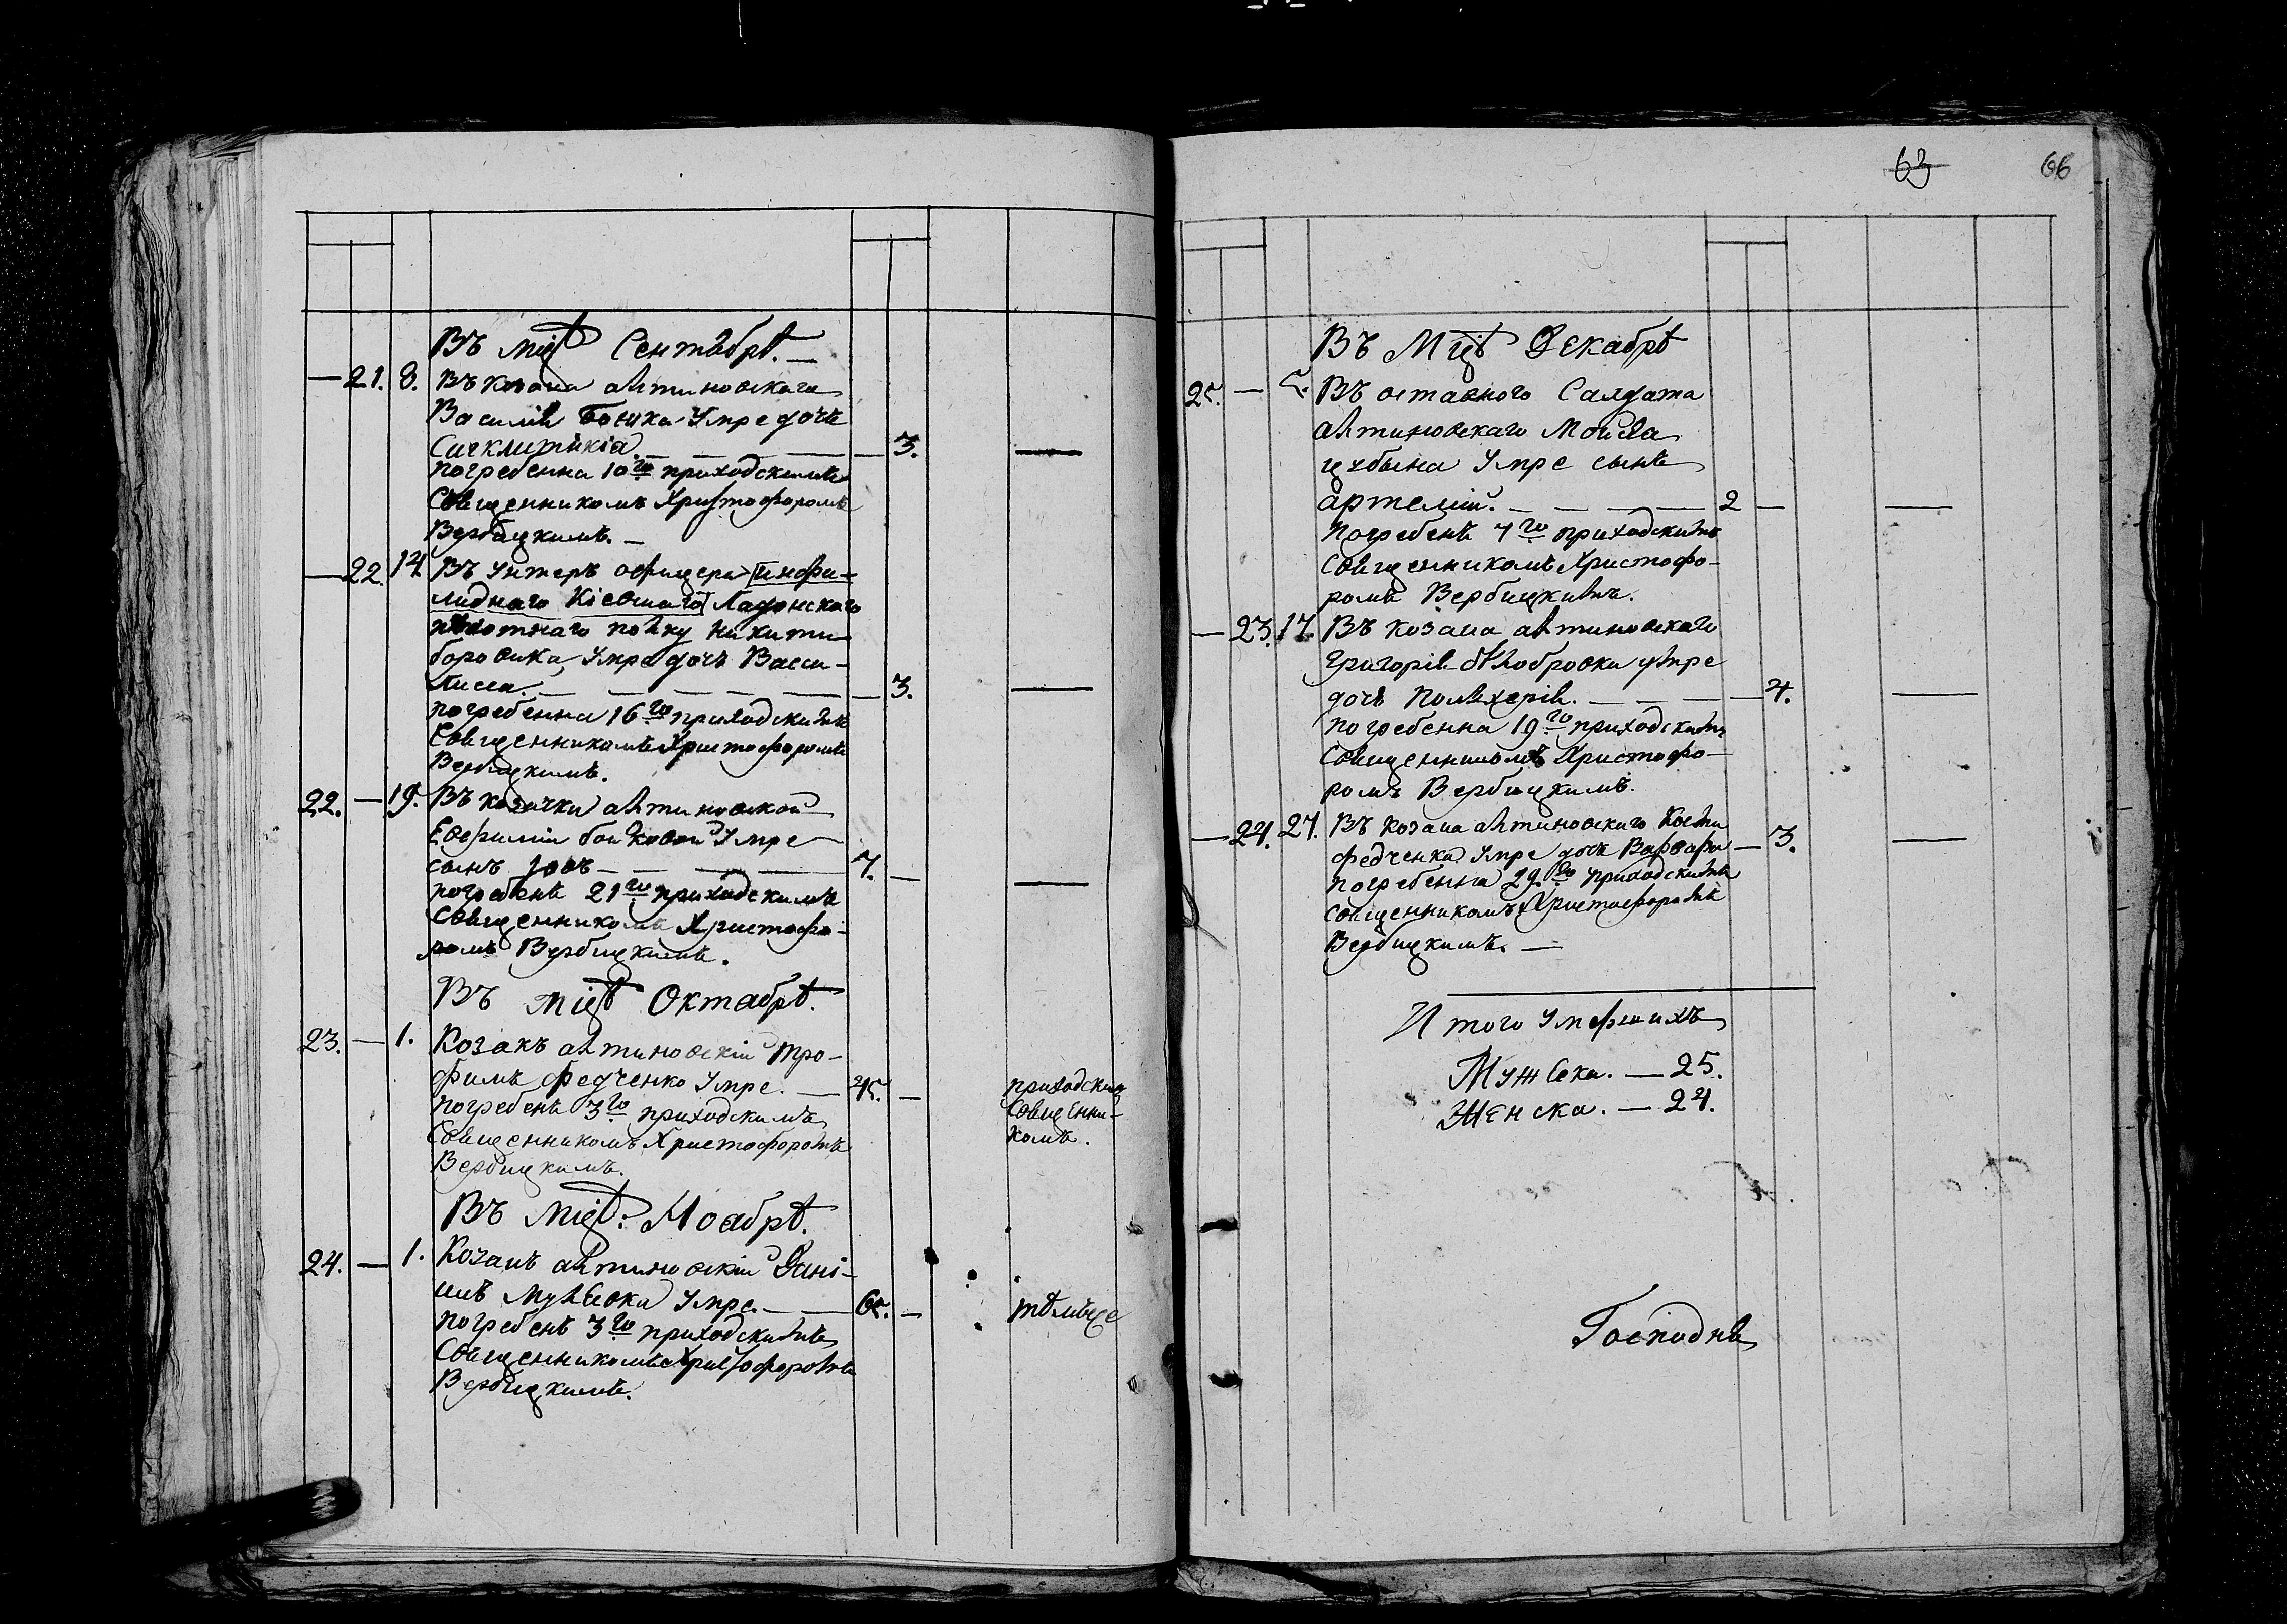 63 66
Въ мцѣ Сентабрѣ. —
— 21. 8. Въ козака алтиновскаго
Василія Боика Умре дочь
Сигклитикіа. — 3. —
погребенна 10го приходскимъ
Священникомъ Христофоромъ
Вербицкимъ. —
— 22. 14. Въ Унтеръ офицера Инфа-
лиднаго Кіевшаго Ладонскаго
пѣхотнаго полку Никити
боровика, Умре дочь Васи-
лисса. — 3. —
погребенна 16го приходскимъ
Священникомъ Христофоромъ
Вербицкимъ.
22. — 19. Въ козачки алтиновской
Евфиміи бойковой Умре
сынъ Іовъ — 7. — —
погребенъ 21го приходскимъ
Священникомъ Христофо-
ромъ Вербицкимъ.
Въ мцѣ Октабрѣ.
23. — 1. Козакъ алтиновскій Тро-
фимъ федченко Умре. — 45. — приходским
погребенъ 3го приходскимъ Священни-
Священникомъ Христофоромъ комъ.
Вербицкимъ.
Въ мцѣ: Ноабрѣ.
24. — 1. Козакъ алтиновскій Дани-
илъ Умре. — 65. — тѣмъже
погребенъ 3го приходскимъ
Священникомъ Христофоромъ
Вербицкимъ.
Въ Мцѣ Декабрѣ
25. — 5. Въ оставного Салдата
алтиновскаго Моисея
Умре сынъ
артемій. — 2 — —
Погребенъ 7го приходскимъ
Священникомъ Христофо-
ромъ Вербицкимъ.
— 23. 17. Въ козака алтиновскаго
Григорія бѣлобровки умре
дочь Полѣхерія. — 4. —
погребенна 19го приходскимъ
Священникомъ Христофо-
ромъ Вербицкимъ.
— 24. 27. Въ козака алтиновскаго
федченка Умре дочь Варвара — 3. —
погребенна 29го приходскимъ
Священникомъ Христофоромъ
Вербицкимъ. —
Итого Умершихъ
Мужеска. — 25.
Женска. — 24.
Господнѣ